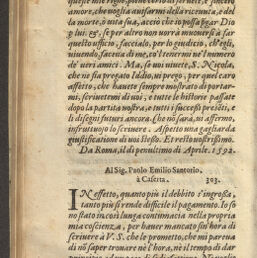 queste mie righe,
che anco si assicuri della ricevuta, e del
la morte, ò vita sua, acciò che io possa ò gar Dio
p lui.
se per altro non vorrà muoversi à far
questo ufficio, faccialo, per lo giudicio, ch'egli
vivendo, faceva di me, ch'io tener mi ne l nomero
de' veri amici. Ma, se voi vivete, S. Nicola,
che mi sia pregato Iddio, mi prego, per quel caro
affetto, che havete sempre mostrato di portar-
mi, scrivetemi di voi, e tutte le historie passate
dopo la nostra partita, e tutti i successi presenti, e
li disegni futuri ancora. Che nò sarà, ni affermo,
infruttuoso lo scrivere. Aspetto una gagliarda
giustificatione di voi stesso. Et resto nostrissimo.
Da Roma, il dì penultimo di Aprile. 1592.
Al Sig. Paolo Emilio Santorio.
à Caserta. 203.
IN effetto, quanto più il debbito s'ingrossa,
tanto più si rende difficile il pagamento. Io so
no stato in così lunga contumacia nella propria
mia coscienza, per haver mancato sin'hora di
scrivere à V. S. che le promette, che mi parena
di nò saper tronare ne l'hora, nè il tempo di dar